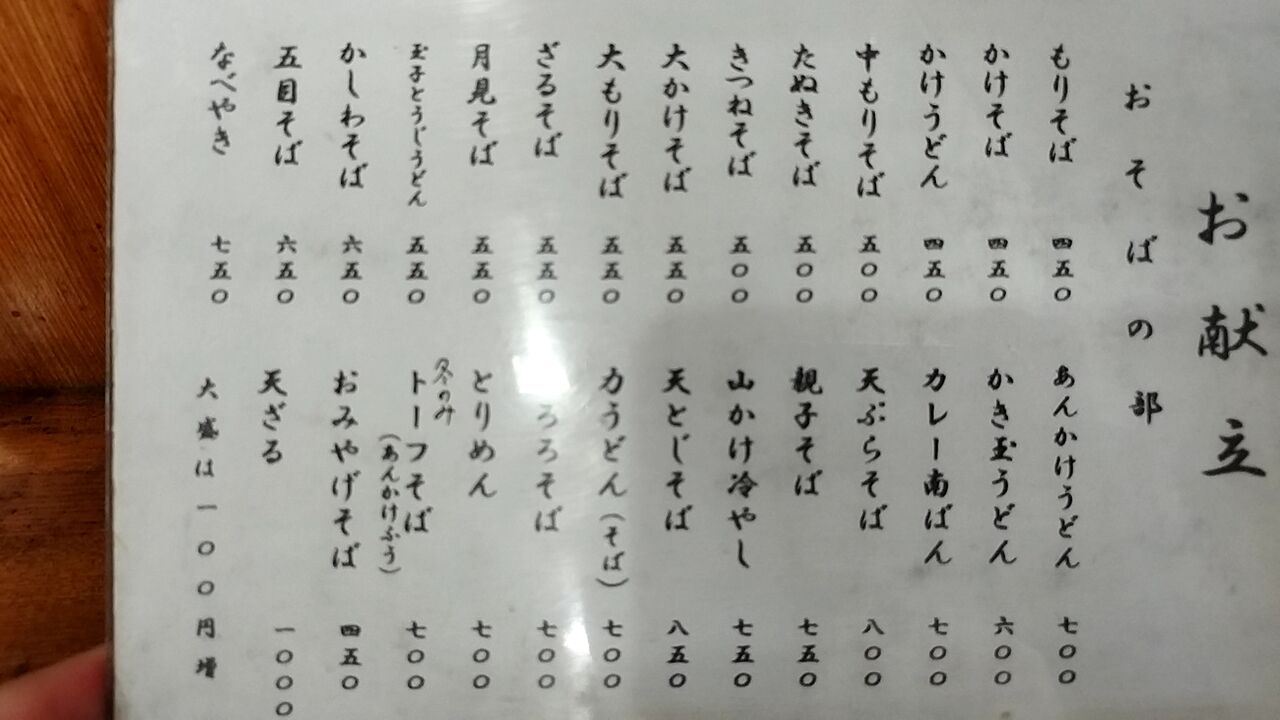 お献立
おそばの部
もりそば 四五〇
かけそば 四五〇
かけうどん 四五〇
中もりそば 五〇〇
たぬきそば 五〇〇
きつねそば 五〇〇
大かけそば 五五〇
大もりそば 五五〇
ざるそば 五五〇
月見そば 五五〇
玉子とうじうどん 五五〇
かしわそば 六五〇
五目そば 六五〇
なべやき 七五〇
あんかけうどん 七〇〇
かき玉うどん 六〇〇
カレー南ばん 七〇〇
天ぷらそば 八〇〇
親子そば 七五〇
山かけ冷やし 七五〇
天とじそば 八五〇
力うどん(そば) 七〇〇
ろろそば 七〇〇
とりめん 七〇〇
冬のみ
トーフそば 七〇〇
(あんかけふう)
おみやげそば 四五〇
天ざる 一〇〇〇
大盛は一〇〇円増